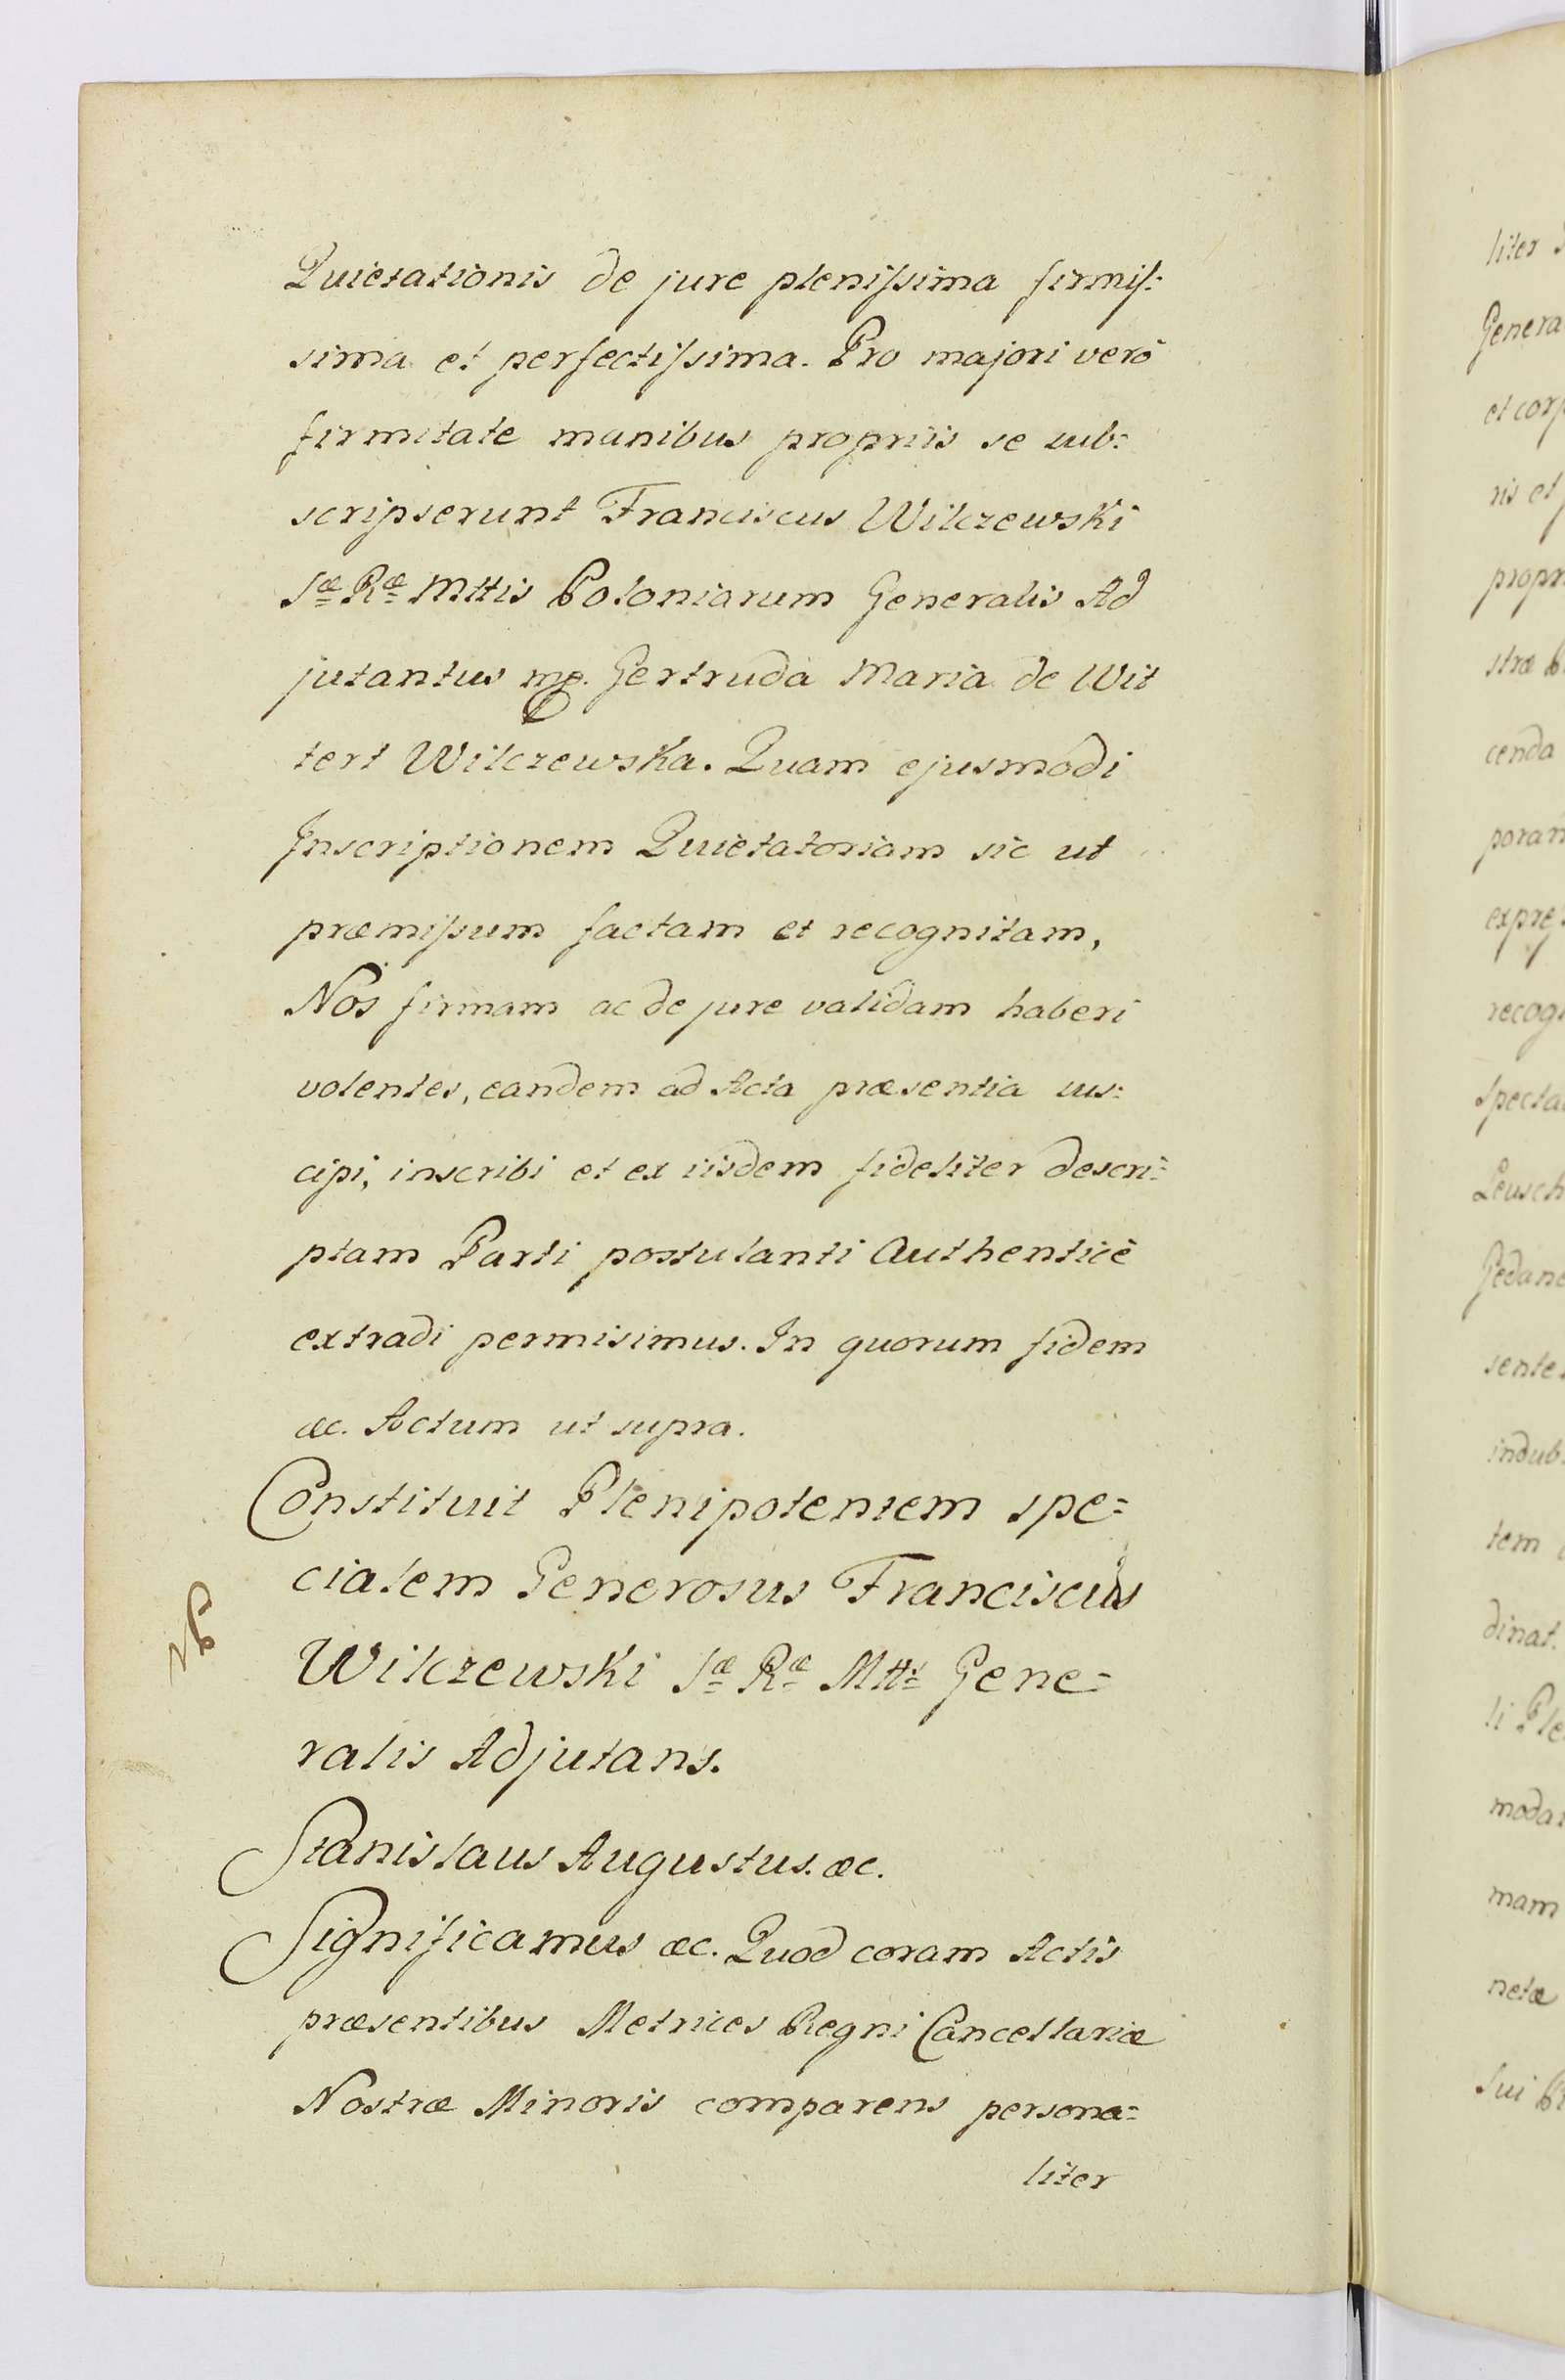 Quietationis de jure plenissima firmis:
sima et perfectissima. Pro majori verò
firmitate manibus propriis se sub:
scripserunt Franciscus Wilczewski
Sæ Ræ Mttis Poloniarum Generalis Ad
jutantus mp. Gertruda Maria de Wit
tert Wilczewska. Quam ejusmodi
Inscriptionem Quietatoriam sic ut
præmissum factam et recognitam,
Nos firmam ac de jure validam haberi
volentes, eandem ad Acta præsentia sus:
cipi, inscribi et ex iisdem fideliter descri:
ptam Parti postulanti Authenticè
extradi permisimus. In quorum fidem
æc. Actum ut supra.
Constituit Plenipotentem spe=
cialem Generosus Franciscus
Wilczewski Sæ Ræ Mtts Gene=
ralis Adjutans.
Stanislaus Augustus. æc.
Significamus æc. Quod coram Actis
præsentibus Metrices Regni Cancellariæ
Nostræ Minoris comparens persona=
liter
liter
Genera
et corp
ris et
propr
stræ
cenda
poran
expres
recog
specta
Leusch
Gedan
sente
indub
tem
dinat.
li Ple
moda
mam
netæ
Sui